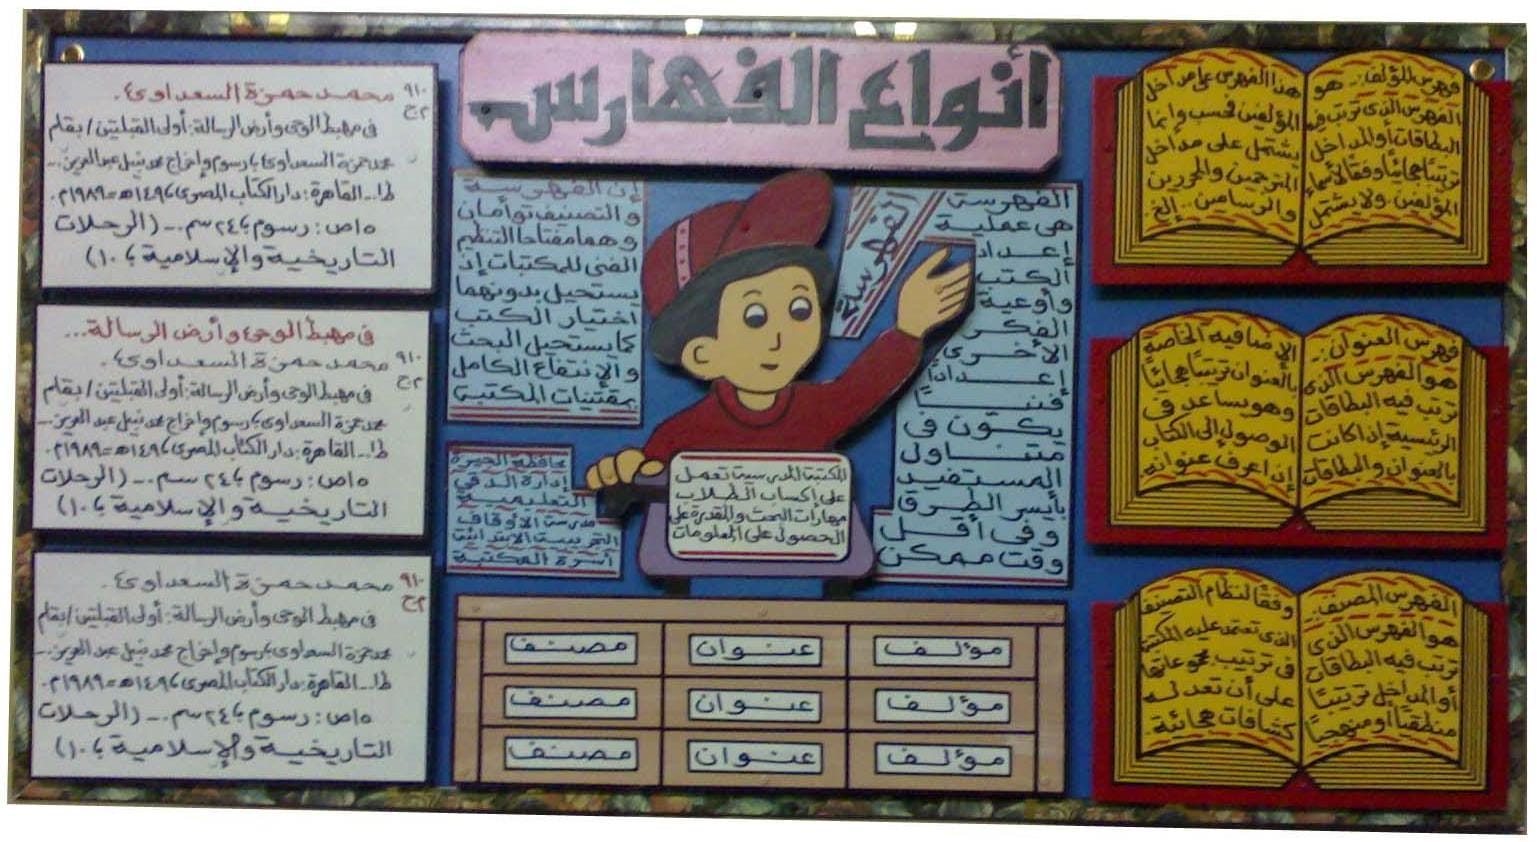 أنواع الفهارس
فهرس المؤلف: هو
الفهرس الذى ترتب فيه
البطاقات أو المداخل
ترتيبًا هجائيًا وفقًا لأسماء
المؤلفين. ولا يشتمل
هذا الفهرس على مداخل
المؤلفين فحسب وإنما
يشتمل على مداخل
المترجمين والمحررين
والرسامين.. إلخ
فهرس العنوان:
هو الفهرس الذى
ترتب فيه البطاقات
الرئيسية إذا كانت
بالعنوان والبطاقات
الإضافيه الخاصة
بالعنوان ترتيبًا هجائيًا
وهو يساعد فى
الوصول إلى الكتاب
إذا عرف عنوانه
الفهرس المصنف:
هو الفهرس الذى
ترتب فيه البطاقات
أو المداخل ترتيبًا
منطقيًا ومنهجيًا
وفقًا لنظام التصنيف
الذى تعتمد عليه المكتبة
فى ترتيب مجموعاتها
على أن تعد له
كشافات هجائية
الفهرسة
الفهرسة
هى عملية
إعداد
الكتب
وأوعية
الفكر
الأخرى
إعدادًا
فنيًا
يكون فى
متناول
المستفيد
بأيسر الطرق
وفى أقل
وقت ممكن
إن الفهرسة
والتصنيف توأمان
وهما مفتاحا التنظيم
الفنى للمكتبات إذ
يستحيل بدونهما
اختيار الكتب
كما يستحيل البحث
والإنتفاع الكامل
بمقتنيات المكتبة
محافظة الجيزة
إدارة الدقي
التعليمية
مدرسة الأوقاف
التجريبية الابتدائية
أسرة المكتبة
المكتبة المدرسية تعمل
على إكساب الطلاب
مهارات البحث والمقدرة على
الحصول على المعلومات
مؤلف عنوان مصنف
مؤلف عنوان مصنف
مؤلف عنوان مصنف
٩١٠ محمد حمزة السعداوى.
م.ح
فى مهبط الوحى وأرض الرسالة: أولى القبلتين / بقلم
محمد حمزة السعداوى؛ رسوم وإخراج محمد نبيل عبد العزيز.ـ
ط١.ـ القاهرة: دار الكتاب المصرى، ١٤٩٦هـ=١٩٨٩م.
٥١ص: رسوم؛ ٢٤سم.ـ (الرحلات
التاريخية والإسلامية؛ ١٠)
فى مهبط الوحى وأرض الرسالة...
٩١٠ محمد حمزة السعداوى.
م.ح
فى مهبط الوحى وأرض الرسالة: أولى القبلتين / بقلم
محمد حمزة السعداوى؛ رسوم وإخراج محمد نبيل عبد العزيز.ـ
ط١.ـ القاهرة: دار الكتاب المصرى، ١٤٩٦هـ=١٩٨٩م.
٥١ص: رسوم؛ ٢٤سم.ـ (الرحلات
التاريخية والإسلامية؛ ١٠)
٩١٠ محمد حمزة السعداوى.
م.ح
فى مهبط الوحى وأرض الرسالة: أولى القبلتين / بقلم
محمد حمزة السعداوى؛ رسوم وإخراج محمد نبيل عبد العزيز.ـ
ط١.ـ القاهرة: دار الكتاب المصرى، ١٤٩٦هـ=١٩٨٩م.
٥١ص: رسوم؛ ٢٤سم.ـ (الرحلات
التاريخية والإسلامية؛ ١٠)